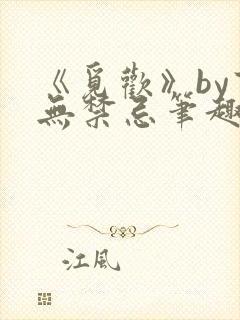 《覓歡》by
無禁忌筆趣
江風